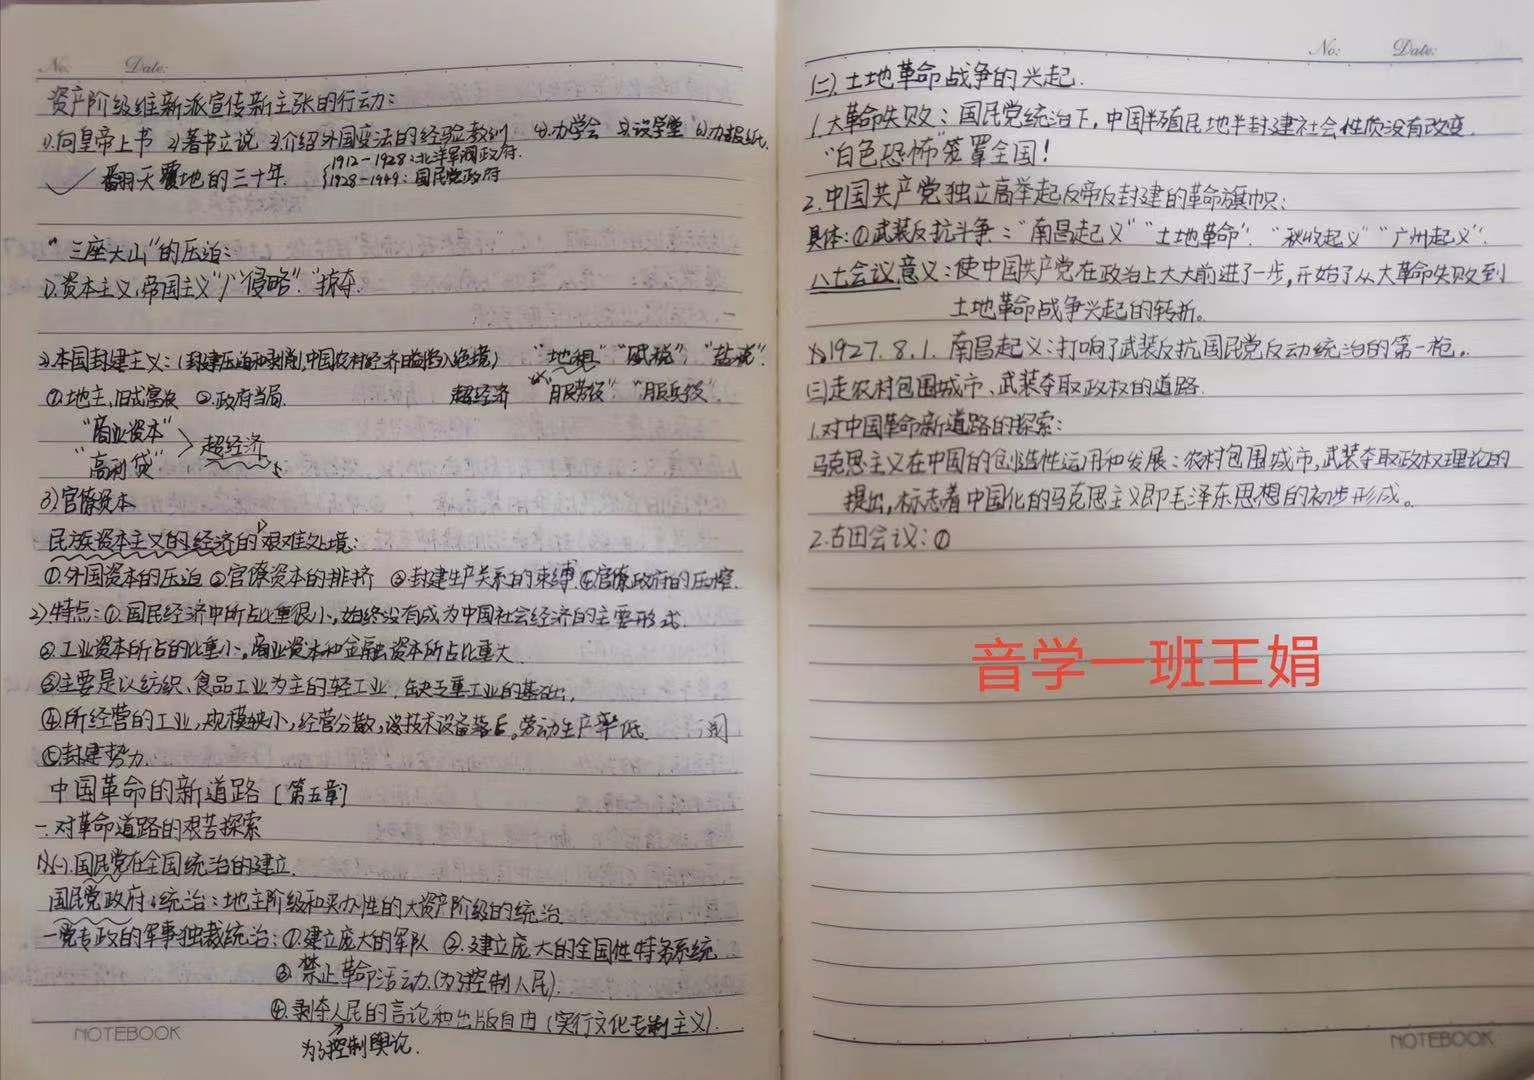 No: Date:
资产阶级维新派宣传新主张的行动:
1)向皇帝上书 2)著书立说 3)介绍外国变法的经验教训 4)办学会 5)设学堂 6)办报纸.
翻天覆地的三十年. {1912-1928:北洋军阀政府.
1928-1949:国民党政府
"三座大山"的压迫:
1).资本主义,帝国主义"/"侵略"."掠夺.
2).本国封建主义:(封建压迫和剥削,中国农村经济日益陷入绝境) "地租" "赋税" "盐税".
①地主,旧式富农 ②.政府当局. 超经济 "服劳役" "服兵役".
"商业资本"
"高利贷" > 超经济
3)官僚资本
民族资本主义的经济的艰难处境:
①.外国资本的压迫 ②官僚资本的排挤 ③封建生产关系的束缚.④官僚政府的压榨.
2)特点:①.国民经济中所占比重很小,始终没有成为中国社会经济的主要形式.
②.工业资本所占的比重小,商业资本和金融资本所占比重大.
③主要是以纺织、食品工业为主的轻工业,缺乏重工业的基础,
④.所经营的工业,规模狭小,经营分散,技术设备落后,劳动生产率低.
⑤封建势力.
中国革命的新道路 [第五章]
一.对革命道路的艰苦探索
(一).国民党在全国统治的建立.
国民党政府统治:地主阶级和买办性的大资产阶级的统治
一党专政的军事独裁统治:①.建立庞大的军队 ②.建立庞大的全国性特务系统
③.禁止革命活动.(为了控制人民).
④.剥夺人民的言论和出版自由(实行文化专制主义).
为了控制舆论.
NOTEBOOK
No: Date:
(二).土地革命战争的兴起.
1.大革命失败:国民党统治下,中国半殖民地半封建社会性质没有改变.
"白色恐怖"笼罩全国!
2.中国共产党独立高举起反帝反封建的革命旗帜:
具体:①武装反抗斗争:"南昌起义" "土地革命". "秋收起义" "广州起义".
八七会议意义:使中国共产党在政治上大大前进了一步,开始了从大革命失败到
土地革命战争兴起的转折。
1927.8.1.南昌起义:打响了武装反抗国民党反动统治的第一枪。
(三)走农村包围城市、武装夺取政权的道路.
1.对中国革命新道路的探索:
马克思主义在中国的创造性运用和发展:农村包围城市,武装夺取政权理论的
提出,标志着中国化的马克思主义即毛泽东思想的初步形成。
2.古田会议:①
音学一班王娟
NOTEBOOK